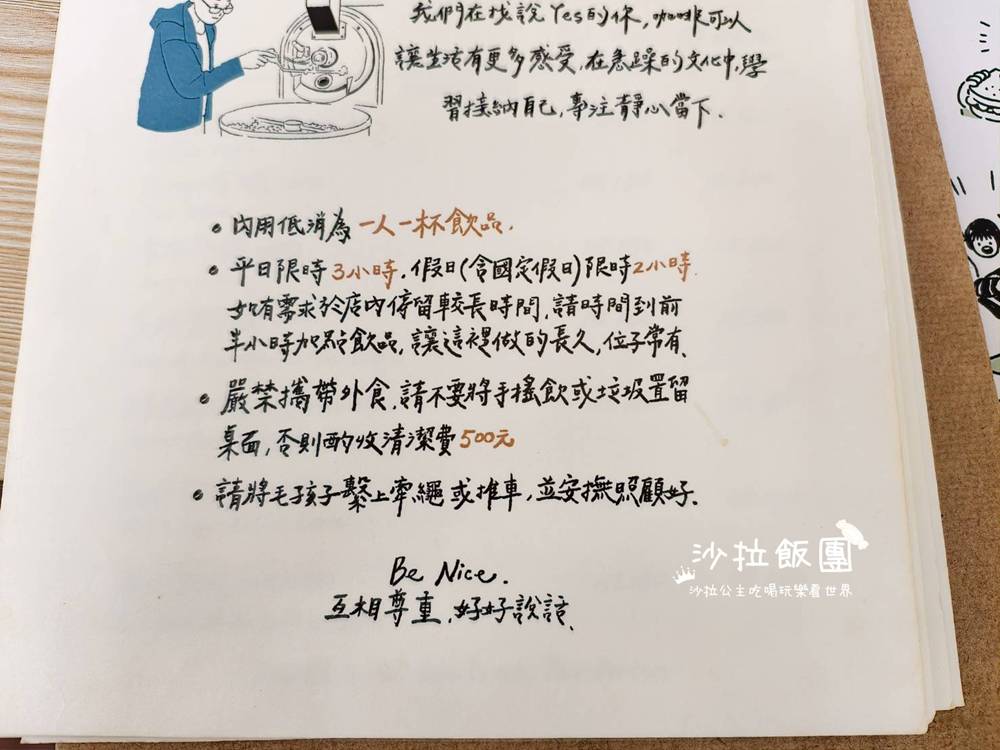 我們在找說Yes的你，咖啡可以
讓生活有更多感受，在急躁的文化中，學
習接納自己，專注靜心當下．
• 內用低消為一人一杯飲品．
• 平日限時3小時．假日(含國定假日)限時2小時．
如有需求於店內停留較長時間，請時間到前
半小時加點飲品，讓這裡做的長久，位子常有．
• 嚴禁攜帶外食．請不要將手搖飲或垃圾置留
桌面，否則酌收清潔費500元
• 請將毛孩子繫上牽繩或推車，並安撫照顧好．
Be Nice.
互相尊重，好好說話．
沙拉飯團
沙拉公主吃喝玩樂看世界